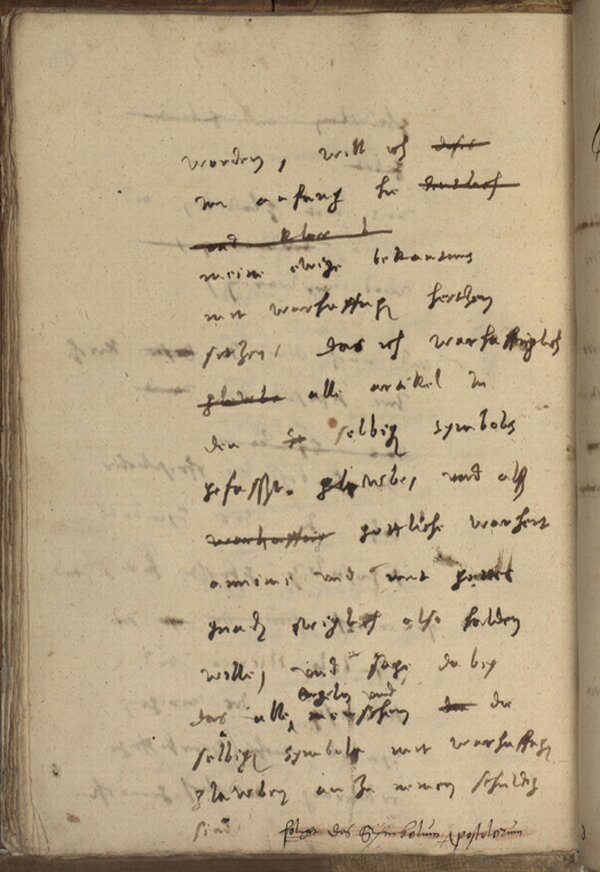 worden, will ich dises
im anfang hie deudlich
und klar
meine ewige bekantnus
mit warhafftigem hertzen
setzen, das ich warhafftiglich
glewbe alle artikel in
den selbigen symbolis
gefasst glewbe, und alss
warhafftig gottliche warheit
annime und mit gottes
gnaden ewiglich also halden
wille, und sage dabey
das alle engeln und menschen die
selbigen symbola mit warhafftigem
glawben an zu nemen schuldig
sind folget das Symbolum Apostolorum